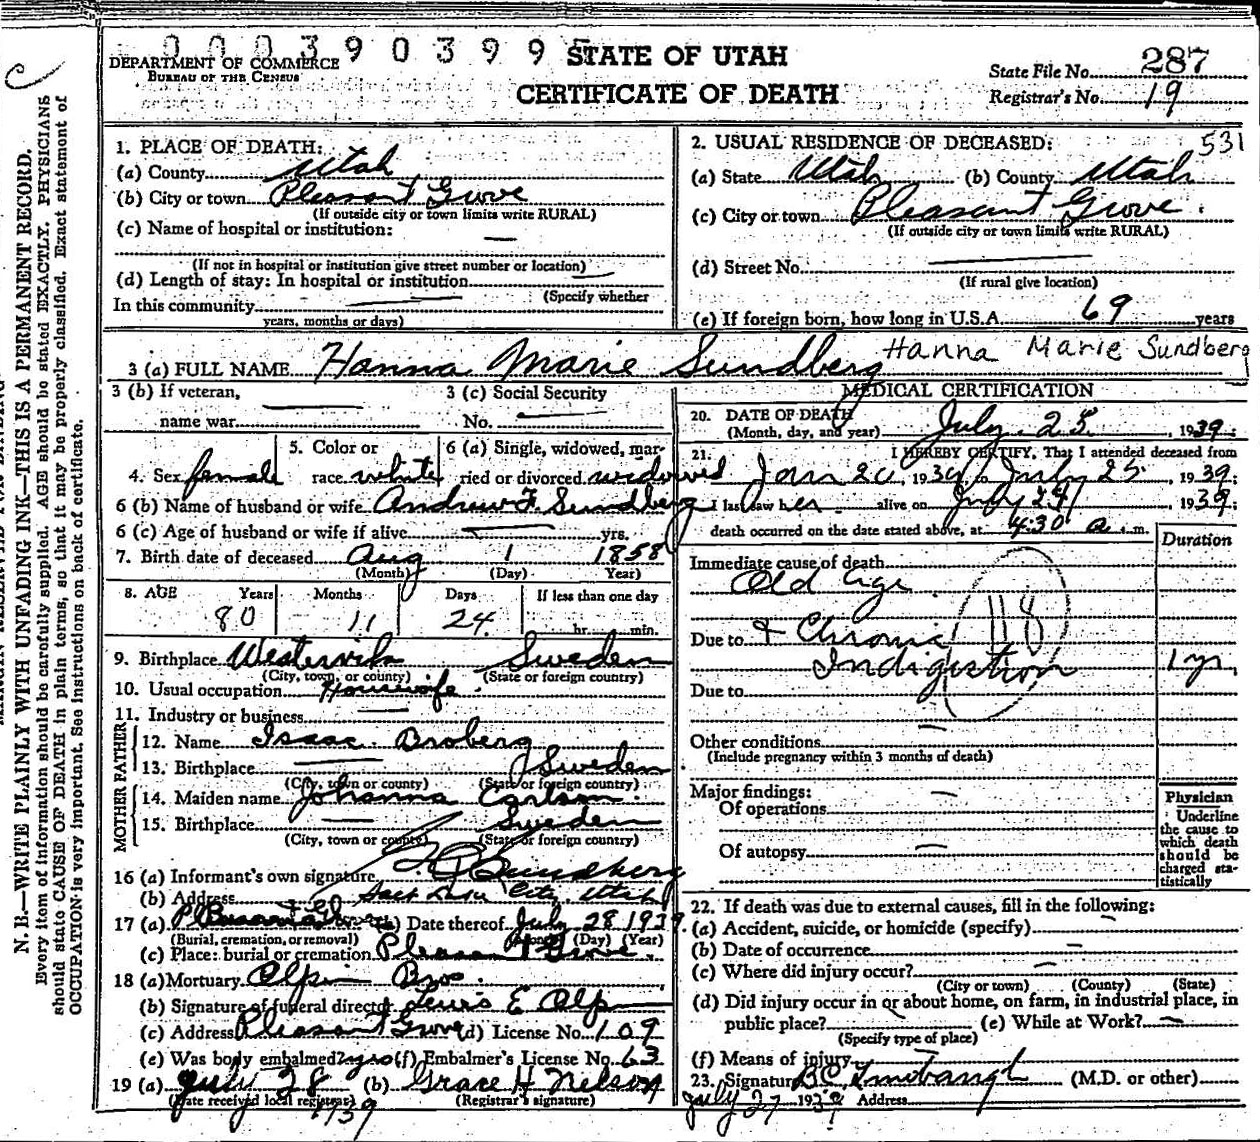 0 0 0 3 9 0 3 9 9
STATE OF UTAH
DEPARTMENT OF COMMERCE
BUREAU OF THE CENSUS
CERTIFICATE OF DEATH
State File No. 287
Registrar's No. 19
N. B.—WRITE PLAINLY WITH UNFADING INK—THIS IS A PERMANENT RECORD.
Every item of information should be carefully supplied. AGE should be stated EXACTLY. PHYSICIANS
should state CAUSE OF DEATH in plain terms, so that it may be properly classified. Exact statement of
OCCUPATION is very important. See instructions on back of certificate.
1. PLACE OF DEATH:
(a) County Utah
(b) City or town Pleasant Grove
(If outside city or town limits write RURAL)
(c) Name of hospital or institution: —
(If not in hospital or institution give street number or location)
(d) Length of stay: In hospital or institution —
(Specify whether
In this community —
years, months or days)
2. USUAL RESIDENCE OF DECEASED: 531
(a) State Utah (b) County Utah
(c) City or town Pleasant Grove.
(If outside city or town limits write RURAL)
(d) Street No. —
(If rural give location)
(e) If foreign born, how long in U.S.A. 69 years
3 (a) FULL NAME Hanna Marie Sundberg Hanna Marie Sundberg
3 (b) If veteran, 3 (c) Social Security
name war — No. —
4. Sex female 5. Color or race white 6 (a) Single, widowed, married or divorced widowed
6 (b) Name of husband or wife Andrew F. Sundberg
6 (c) Age of husband or wife if alive — yrs.
7. Birth date of deceased Aug 1 1858
(Month) (Day) Year)
8. AGE Years Months Days If less than one day
80 11 24 hr. min.
9. Birthplace Westervik Sweden
(City, town, or county) (State or foreign country)
10. Usual occupation Housewife
11. Industry or business —
FATHER
12. Name Isaac Broberg
13. Birthplace — Sweden
(City, town or county) (State or foreign country)
MOTHER
14. Maiden name Johanna Carlson
15. Birthplace — Sweden
(City, town or county) (State or foreign country)
16 (a) Informant's own signature Sundberg
(b) Address Salt Lake City, Utah
17 (a) Burial (b) Date thereof July 28 1939
(Burial, cremation, or removal) (Month) (Day) (Year)
(c) Place: burial or cremation Pleasant Grove.
18 (a) Mortuary Olpin Bros.
(b) Signature of funeral director Lewis E Olpin
(c) Address Pleasant Grove (d) License No. 109
(e) Was body embalmed? yes (f) Embalmer's License No. 63
19 (a) July 28 1939 (b) Grace H Nelson
(Date received local registrar) (Registrar's signature)
MEDICAL CERTIFICATION
20. DATE OF DEATH
(Month, day, and year) July 25, 1939;
21. I HEREBY CERTIFY, That I attended deceased from
Jan 20, 1939 to July 25, 1939;
I last saw her alive on July 24, 1939;
death occurred on the date stated above, at 4:30 a. m.
Duration
Immediate cause of death
Old Age
Due to & Chronic 118
Indigistion 1 yr
Due to
—
Other conditions —
(Include pregnancy within 3 months of death)
Major findings:
Of operations —
Of autopsy —
Physician
Underline
the cause to
which death
should be
charged sta-
tistically
22. If death was due to external causes, fill in the following:
(a) Accident, suicide, or homicide (specify) —
(b) Date of occurrence —
(c) Where did injury occur? —
(City or town) (County) (State)
(d) Did injury occur in or about home, on farm, in industrial place, in
public place? (e) While at Work? —
(Specify type of place)
(f) Means of injury
23. Signature (M.D. or other)
July 27 1939 Address